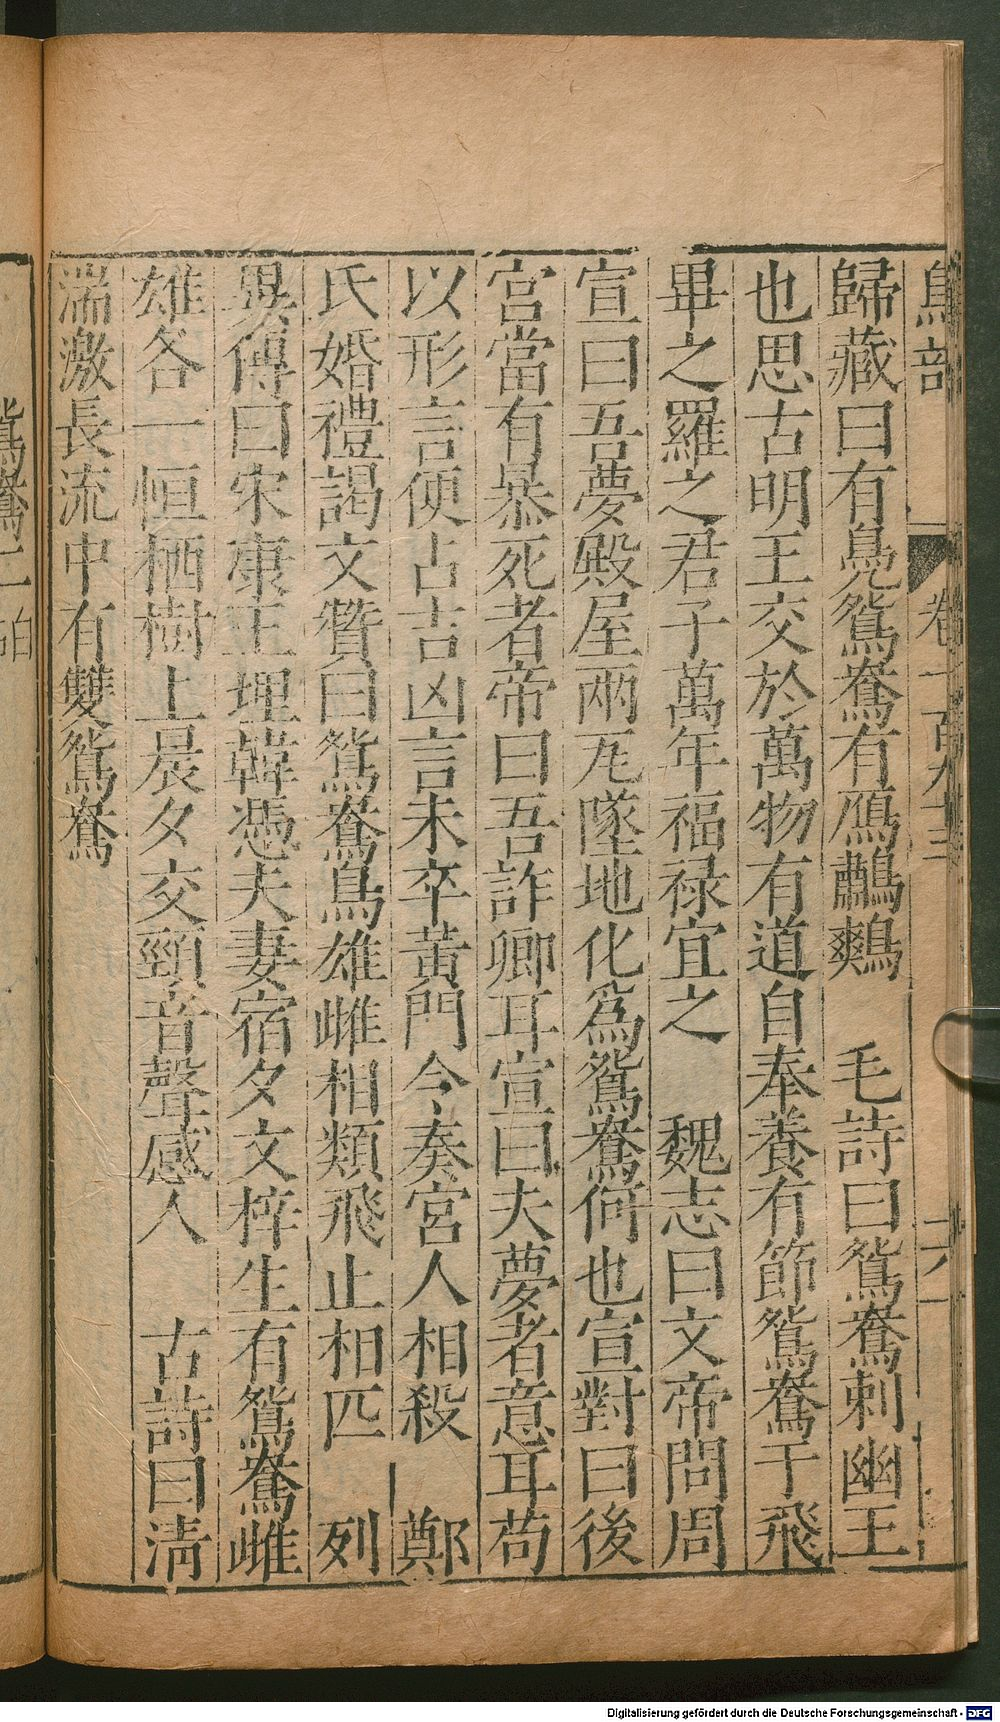 鳥部 卷一百九十三 二六
歸藏曰有鳧鴛鴦有鴈鷫鷞 毛詩曰鴛鴦刺幽王
也思古明王交於萬物有道自奉養有節鴛鴦于飛
畢之羅之君子萬年福禄宜之 魏志曰文帝問周
宣曰吾夢殿屋兩瓦墜地化為鴛鴦何也宣對曰後
宮當有暴死者帝曰吾詐卿耳宣曰夫夢者意耳苟
以形言便占吉凶言未卒黃門令奏宮人相殺 鄭
氏婚禮謁文贊曰鴛鴦鳥雄雌相類飛止相匹 列
異傳曰宋康王埋韓憑夫妻宿夕文梓生有鴛鴦雌
雄各一恒栖樹上晨夕交頸音聲感人 古詩曰淸
湍激長流中有雙鴛鴦
鴛鴦二
Digitalisierung gefördert durch die Deutsche Forschungsgemeinschaft - DFG